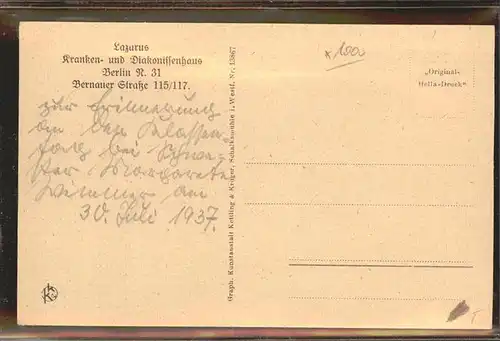 Lazarus
Kranken- und Diakonissenhaus
Berlin N. 31
Bernauer Straße 115/117.
zur Erinnerung
an den Klassen
tag bei Schwe-
ster Margarete
Wimmer am
30. Juli 1937.
Graph. Kunstanstalt Kettling & Krüger, Schalksmühle i. Westf. Nr. 13867
1900
„Original-
Hella-Druck"
K
T